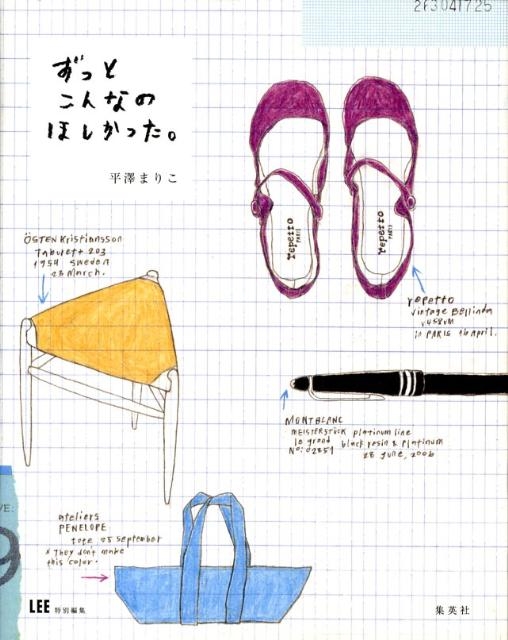 263041725
ずっと
こんなの
ほしかった。
平澤まりこ
repetto
PARIS
repetto
PARIS
ÖSTEN Kristiansson
Taburett 203
1954 Sweden
23 March.
repetto
vintage Bellinda
in PARIS 16 April.
MONTBLANC
MEISTERSTÜCK platinum line
le grand black resin & platinum
No: 02851 28 June, 2006
ateliers
PENELOPE
tote 05 September
* They don't make
this color.
VE:
9
LEE 特別編集
集英社